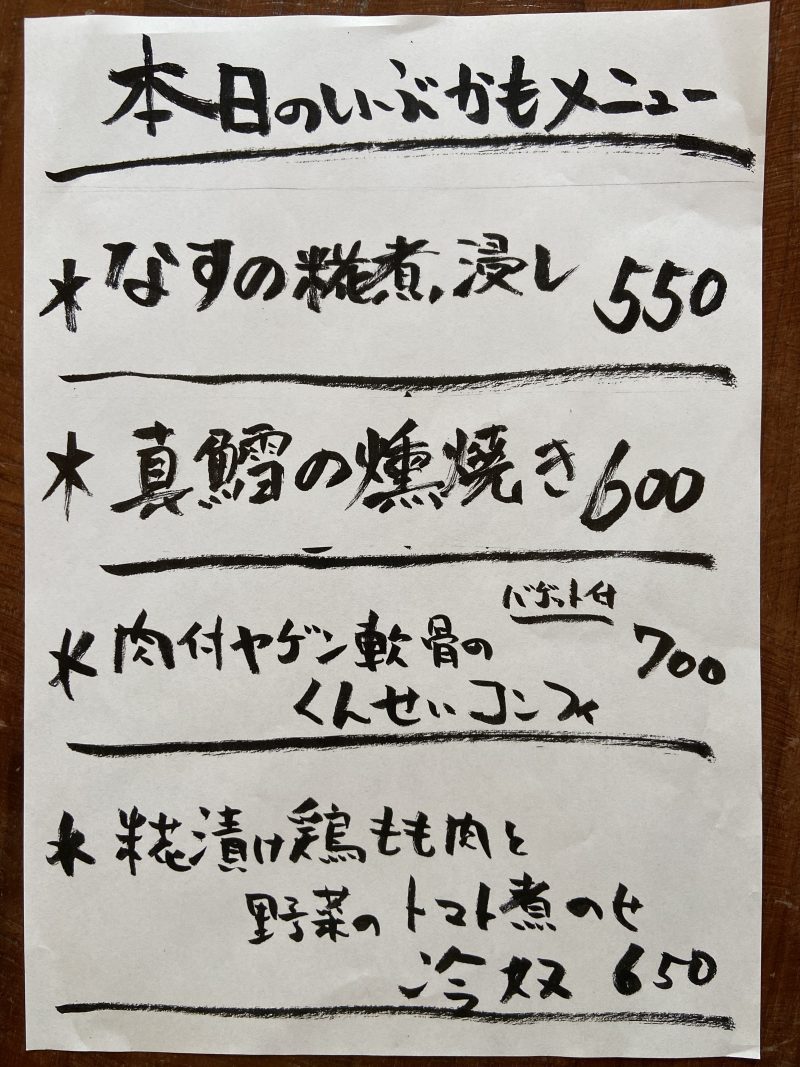 本日のいぶかもメニュー
* なすの糀煮浸し 550
* 真鱈の燻焼き 600
バゲット付
* 肉付ヤゲン軟骨の 700
くんせいコンフィ
* 糀漬け鶏もも肉と
野菜のトマト煮のせ
冷奴 650